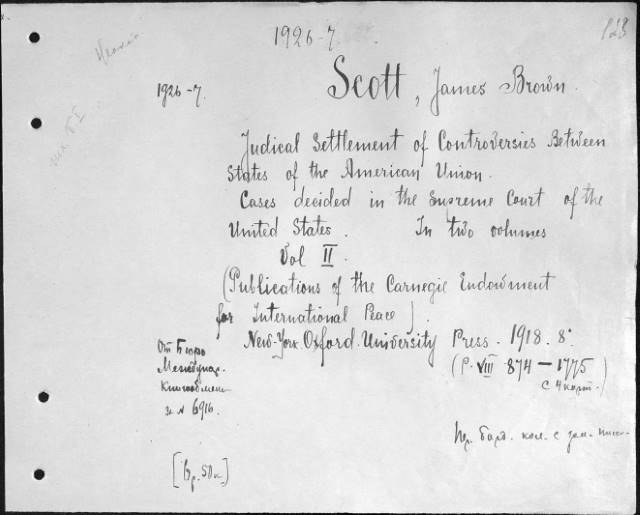 1926-7.
123
1926-7.
Scott, James Brown.
Judical Settlement of Controversies Between
States of the American Union.
Cases decided in the Supreme Court of the
United States. In two volumes
Vol II.
(Publications of the Carnegie Endowment
for International Peace).
New-York. Oxford University Press. 1918. 8°
(P. VIII 874-1775
с 4 карт.)
От Бюро
Междунар.
Книгообмена
за № 6916.
кол. с
[3р. 50к]